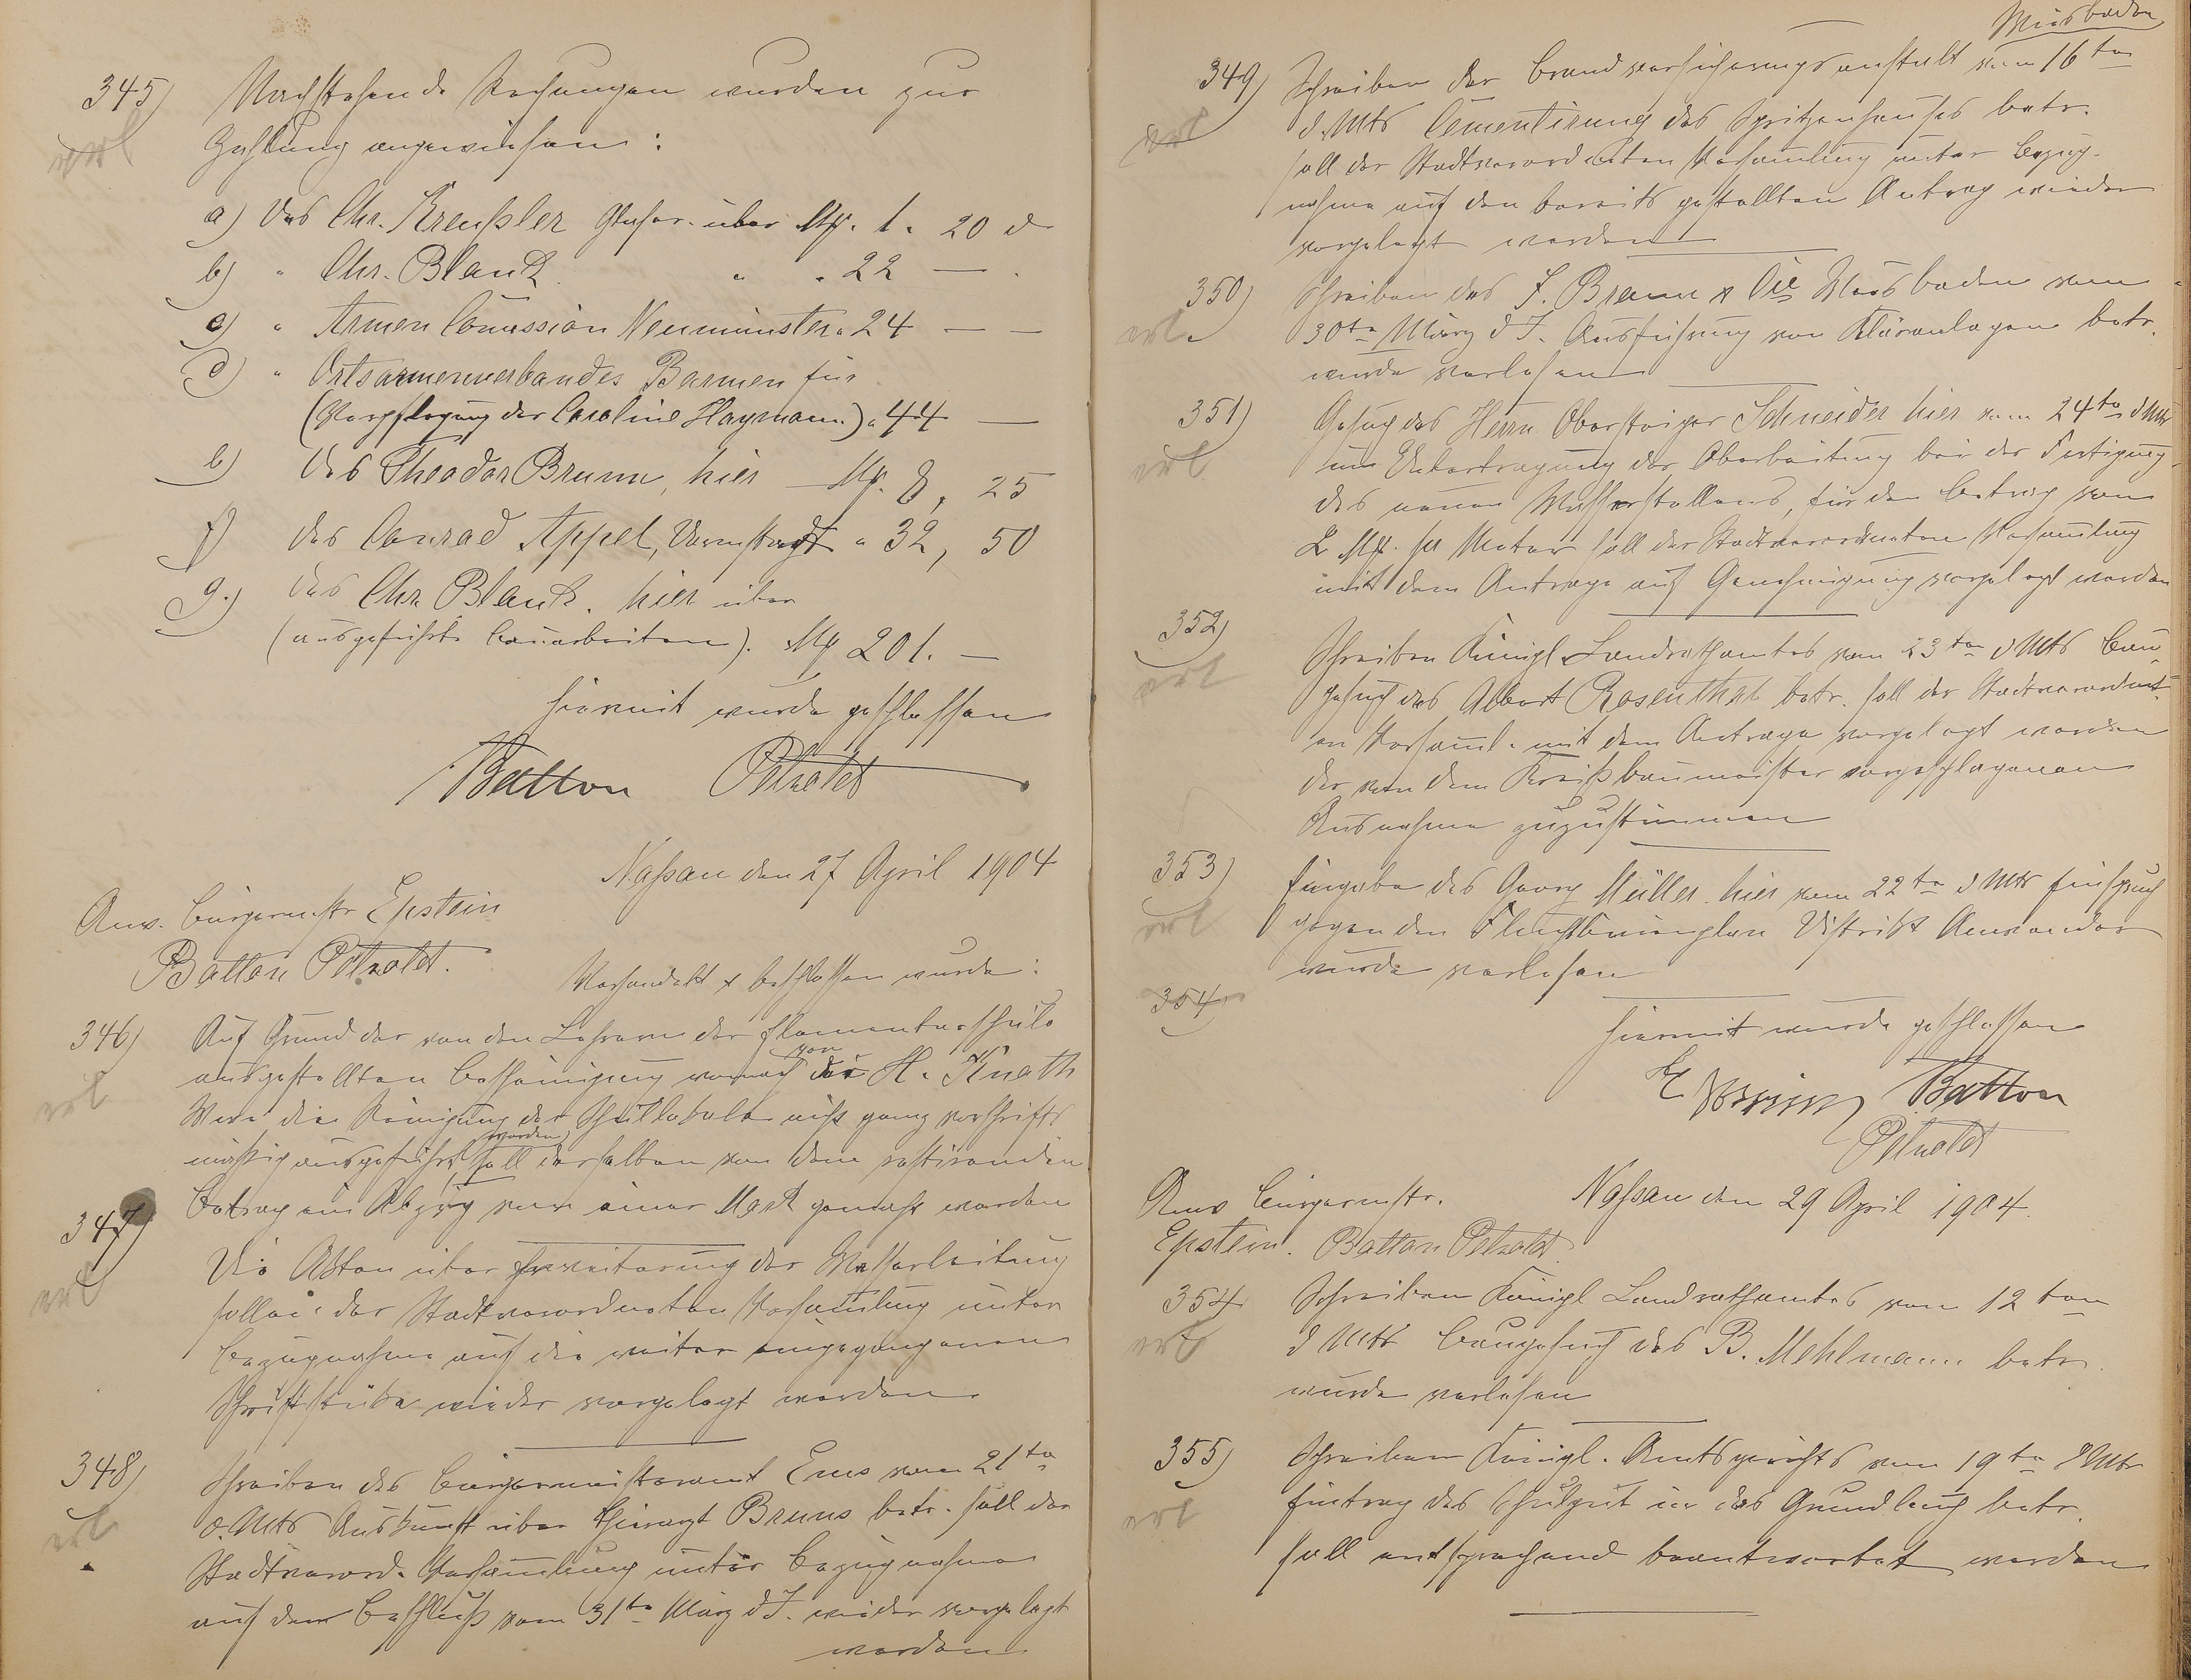 345) Nachstehende Rechnungen wurden zur
erl
Zahlung angewiesen:
a) des Chr. Kreußler Glaser über Mk. 1. 20 d
b) " Chr. Blank " " 22 —
c) " Armen Comission Neumünster " 24 — —
d) " Ortsarmenverbandes Barmen für
(Verpflegung der Caroline Haymann) " 44 —
e) des Theodor Bruun, hier — Mk. 8, 25
f) des Conrad Appel, Darmstadt " 32, 50
g.) des Chr. Blank. hier über
(ausgeführte Bauarbeiten). Mk 201. —
Hiermit wurde geschlossen
Batton Petzoldt
Naßau den 27 April 1904
Anw. Bürgermstr Epstein
Batton Petzoldt.
Verhandelt & beschlossen wurde:
346) Auf Grund der von den Lehrern der Elementarschule
ausgestellten Bescheinigung wonach von der H. Knoth
erl
Wwe die Reinigung der Schullokale nicht ganz vorschrifts
mäßig ausgeführt worden, soll derselben von dem restirenden
Betrag ein Abzug von einer Mark gemacht werden
347) Die Akten über Erweiterung der Wasserleitung
erl
sollen der Stadtverordneten Versamlung unter
Bezugnahme auf die weiter eingegangenen
Schriftstücke wieder vorgelegt werden
348) Schreiben des Bürgermeisteramt Ems vom 21ten
d. Mts Auskunft über Thierarzt Bruns betr. soll der
erl
Stadtverord. Versamlung unter Bezugnahme
auf den Beschluß vom 31ten März d J. wieder vorgelegt
werden
Wiesbaden
349) Schreiben der Brandversicherungsanstalt vom 16ten
d. Mts Cementirung des Spritzenhauses betr.
erl
soll der Stadtverordneten Versamlung unter Bezug-
nahme auf den bereits gestellten Antrag wieder
vorgelegt werden
350) Schreiben des J. Braun & Cie Wiesbaden vom
erl.
30ten März d J. Ausführung von Kläranlagen betr.
wurde verlesen
351) Gesuch des Herrn Obersteiger Schneider hier vom 24ten d Mts
erl
um Uebertragung der Oberleitung bei der Fertigung
des neuen Wasserstollens, für den Betrag von
2 Mk. pr Meter soll der Stadtverordneten Versamlung
mit dem Antrage auf Genehmigung vorgelegt werden
352) Schreiben Königl. Landrathamtes vom 23ten d Mts Bau-
erl
gesuch des Albert Rosenthal betr. soll der Stadtverordnet-
en Versaml. mit dem Antrage vorgelegt werden
der von dem Kreisbaumeister vorgeschlagenen
Ausnahme zuzustimmen
353) Eingabe des Georg Müller hier vom 22ten d Mts Einspruch
erl
gegen den Fluchtlinienplan Distrikt
wurde verlesen
354
Hiermit wurde geschlossen
Batton
Petzoldt
Naßau den 29 April 1904.
Anw Bürgermstr.
Epstein. Batton Petzoldt
354 Schreiben Königl Landrathamtes vom 12ten
erl
d Mts Baugesuch des B. Mehlmann betr.
wurde verlesen
355) Schreiben Königl. Amtsgerichts vom 19ten d Mts
erl
Eintrag des Schulgut in das Grundbuch betr.
soll entsprechend beantwortet werden